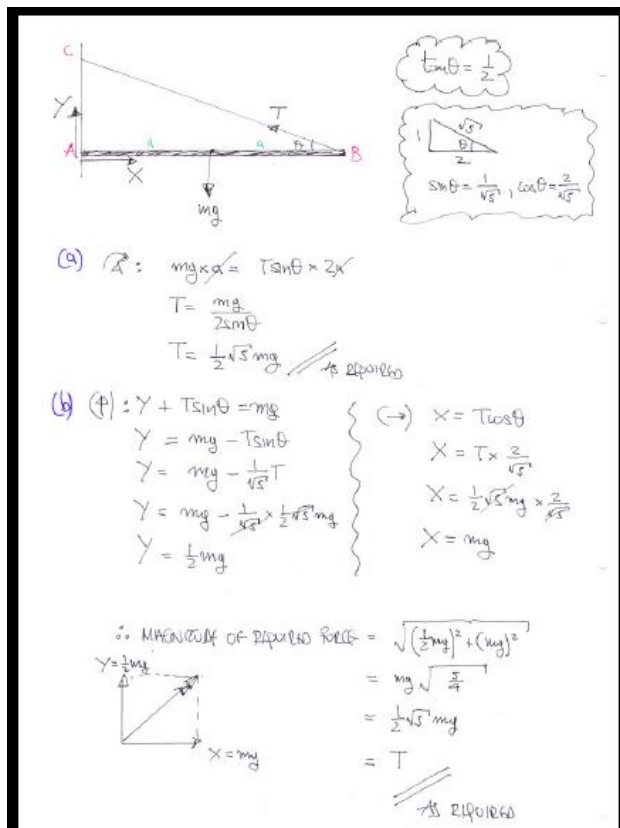 C
tanθ = 1/2
Y
T
a
a
θ
A
B
X
mg
1
√5
θ
2
sinθ = 1/√5, cosθ = 2/√5
(a) A: mg×a = Tsinθ × 2a
T = mg/2sinθ
T = 1/2 √5 mg
AS REQUIRED
(b) (↑): Y + Tsinθ = mg
Y = mg - Tsinθ
Y = mg - 1/√5 T
Y = mg - 1/√5 × 1/2 √5 mg
Y = 1/2 mg
(→) X = Tcosθ
X = T × 2/√5
X = 1/2 √5 mg × 2/√5
X = mg
∴ MAGNITUDE OF REQUIRED FORCE = √((1/2 mg)² + (mg)²)
= mg √(5/4)
= 1/2 √5 mg
= T
AS REQUIRED
Y = 1/2 mg
X = mg